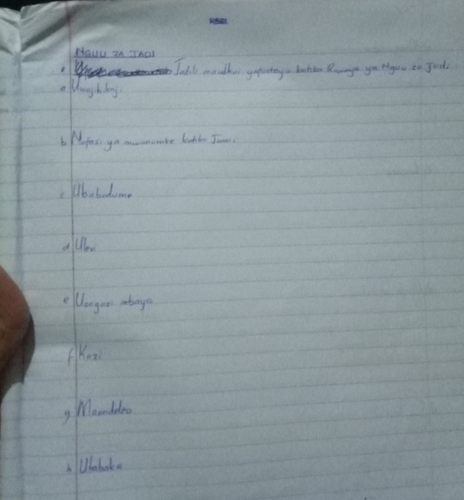 NGUU ZA JADI
Jadili maudhui yafuatayo katika Riwaya ya Nguu za Jadi.
a
b Nafasi ya mwanamke katika Jamii.
c Ubabedume
d Ulevi
e Uongozi mbaya
f Kazi
g Maendeleo
h Utabaka